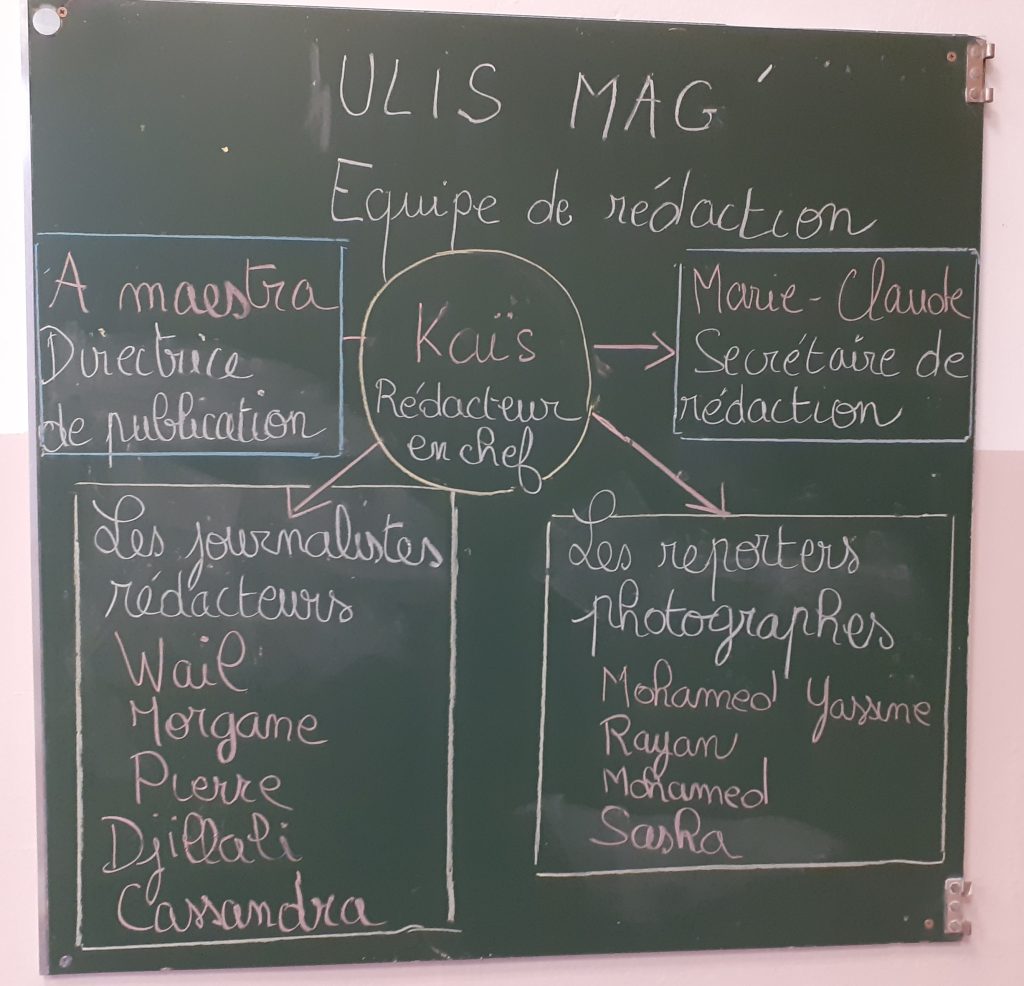 ULIS MAG'
Equipe de rédaction
A maestra
Directrice
de publication
Kaïs
Rédacteur
en chef
Marie-Claude
Secrétaire de
rédaction
Les journalistes
rédacteurs
Wail
Morgane
Pierre
Djillali
Cassandra
Les reporters
photographes
Mohamed Yassine
Rayan
Mohamed
Sasha